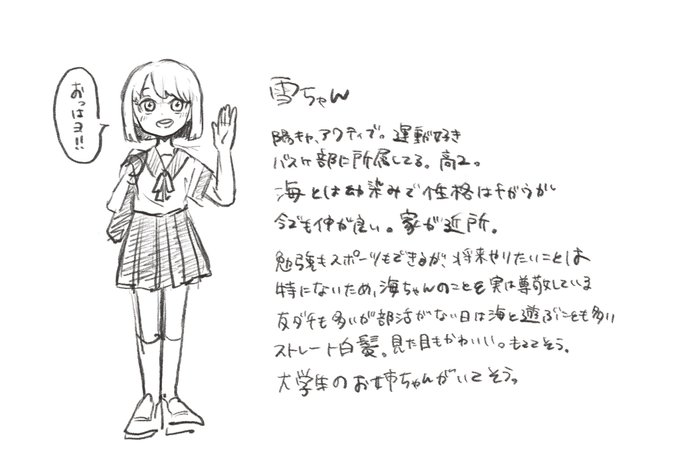 おっはヨ!!
雪ちゃん
陽キャ、アクティブ。運動好き
バスケ部に所属してる。高2。
海とは幼染みで性格はちがうが
今でも仲が良い。家が近所。
勉強もスポーツもできるが、将来やりたいことは
特にないため、海ちゃんのことを実は尊敬している
友ダチも多いが部活がない日は海と遊ぶことも多い
ストレート白髪。見た目もかわいい。もててそう。
大学生のお姉ちゃんがいてそう。